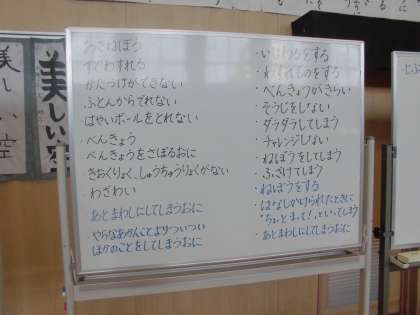 あさねぼう
すぐわすれる
かたづけができない
ふとんからでれない
はやいボールをとれない
・べんきょう
べんきょうをさぼるおに
きおくりょく、しゅうちゅうりょくがない
・わざわい
あとまわしにしてしまうおに
やらなあかんことよりついつい
ほかのことをしてしまうおに
・いじわるをする
・わすれものをする
・べんきょうがきらい
・そうじをしない
・ダラダラしてしまう
・チャレンジしない
・ねぼうをしてしまう
・ふざけてしまう
・ねぼうをする
・はなしかけられたときに
「ちょとまって!」といってしまう
・あとまわしにしてしまうおに
美しい空
美しい